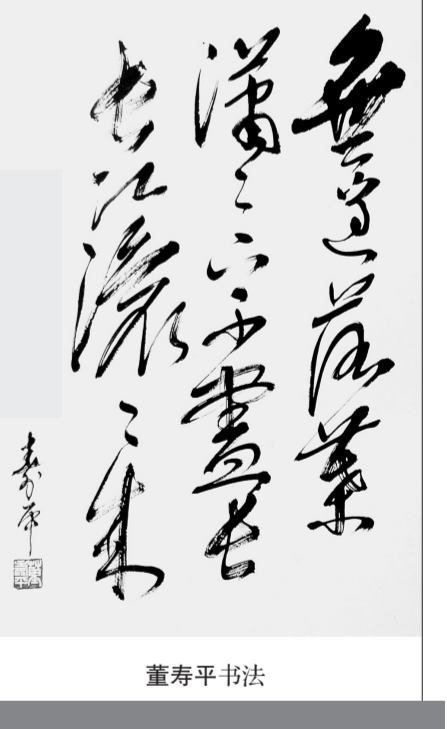 無邊落葉
瀟〻下不盡長
長江滾〻來
壽平
董寿平书法